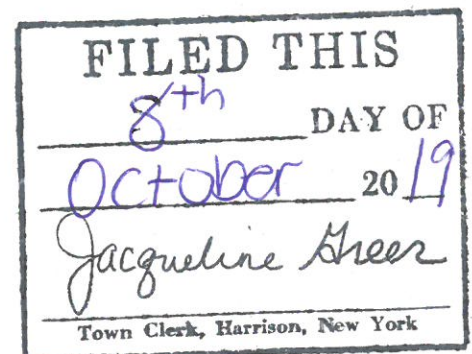 FILED THIS
8th DAY OF
October 2019
Jacqueline Greer
Town Clerk, Harrison, New York